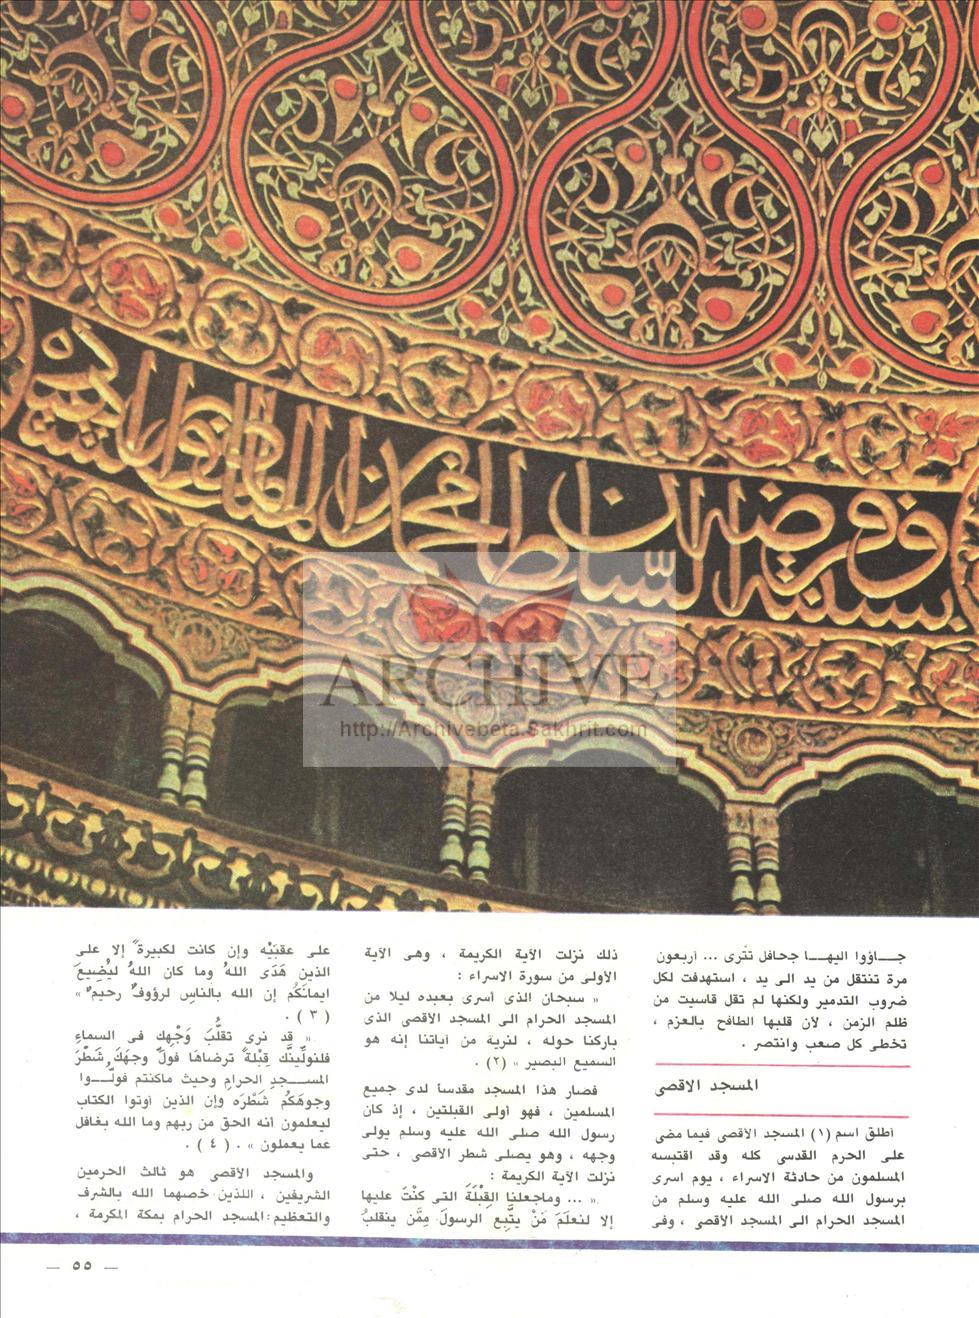 ARCHIVE
http://Archivebeta.Sakhrit.com
جـــاؤوا اليهـــا جحافل تترى ... أربعون
مرة تنتقل من يد الى يد ، استهدفت لكل
ضروب التدمير ولكنها لم تقل قاسيت من
ظلم الزمن ، لأن قلبها الطافح بالعزم ،
تخطى كل صعب وانتصر .
المسجد الاقصى
أطلق اسم (١) المسجد الأقصى فيما مضى
على الحرم القدسى كله وقد اقتبسه
المسلمون من حادثة الاسراء ، يوم اسرى
برسول الله صلى الله عليه وسلم من
المسجد الحرام الى المسجد الاقصى ، وفى
ذلك نزلت الآية الكريمة ، وهى الآية
الأولى من سورة الاسراء :
« سبحان الذى أسرى بعبده ليلا من
المسجد الحرام الى المسجد الأقصى الذى
باركنا حوله ، لنريه من آياتنا إنه هو
السميع البصير » (٢) .
فصار هذا المسجد مقدسا لدى جميع
المسلمين ، فهو أولى القبلتين ، إذ كان
رسول الله صلى الله عليه وسلم يولى
وجهه ، وهو يصلى شطر الأقصى ، حتى
نزلت الآية الكريمة :
« ... وماجعلنا القِبْلَةَ التى كنْتَ عليها
إلا لنعلَمَ مَنْ يتَّبِع الرسولَ مِمَّن ينقلبُ
على عقبَيْه وإن كانت لكبيرةً إلا على
الذين هَدَى اللهُ وما كان اللهُ ليُضِيعَ
ايمانَكُم إن الله بالناسِ لرؤوفٌ رحيمٌ »
( ٣ ) .
« قد نرى تقلُّبَ وَجْهِك فى السماءِ
فلنولِّينَّك قِبْلةً ترضاهَا فولِّ وجهَكَ شَطْرَ
المســـجدِ الحرامِ وحيث ماكنتم فولُّـــوا
وجوهَكُم شَطْرَه وإن الذين أوتوا الكتاب
ليعلمون أنه الحق من ربهم وما الله بغافل
عما يعملون » . ( ٤ ) .
والمسجد الأقصى هو ثالث الحرمين
الشريفين ، اللذين خصهما الله بالشرف
والتعظيم : المسجد الحرام بمكة المكرمة ،
— ٥٥ —